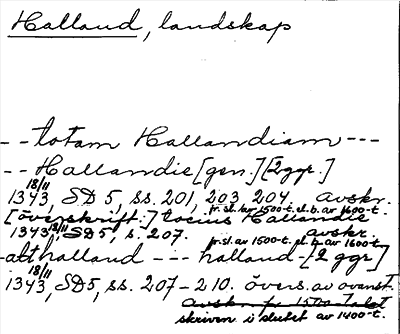 Halland, landskap
-- totam Hallandiam ---
-- Hallandie [gen.] [2 ggr.]
18/11
1343, SD 5, ss. 201, 203 204. avskr.
fr. sl. av 1500-t. el. b. av 1600-t.
[överskrift:] tocius Hallandie
1343 18/11, SD 5, s. 207. avskr.
fr. sl. av 1500-t. el. b. av 1600-t.
- alt halland --- halland - [2 ggr]
18/11
1343, SD 5, ss. 207-210. övers. av ovanst.
avskr. fr. 1500-talet
skriven i slutet av 1400-t.